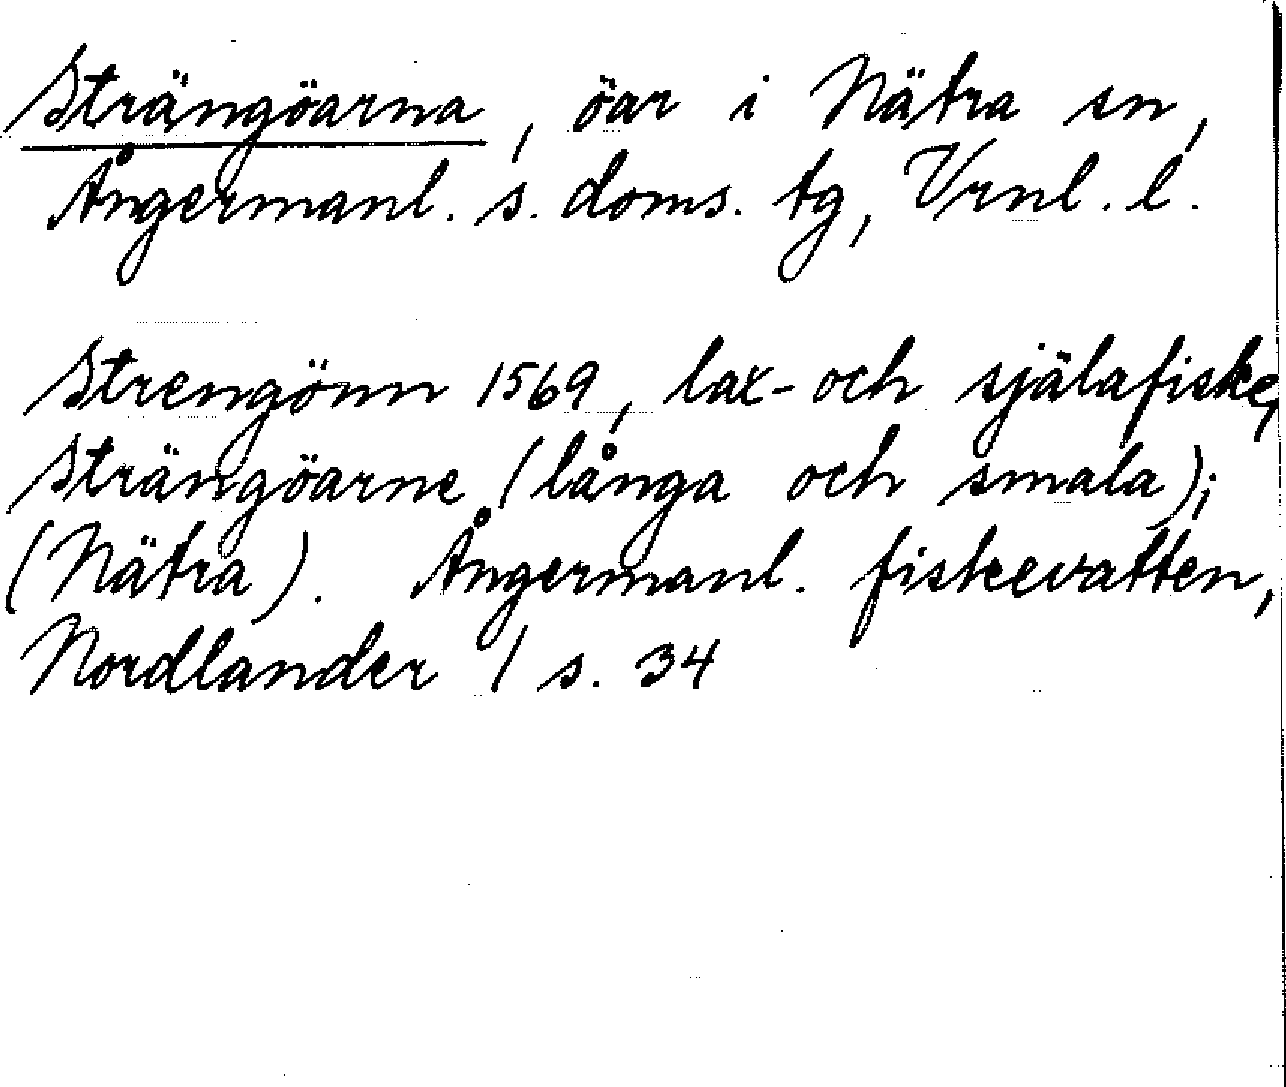 Strängöarna, öar i Nätra sn,
Ångermanl. s. doms. tg, Vrnl. l.
Strengönn 1569, lax- och själafiske,
Strängöarne (långa och smala);
(Nätra). Ångermanl. fiskevatten,
Nordlander / s. 34